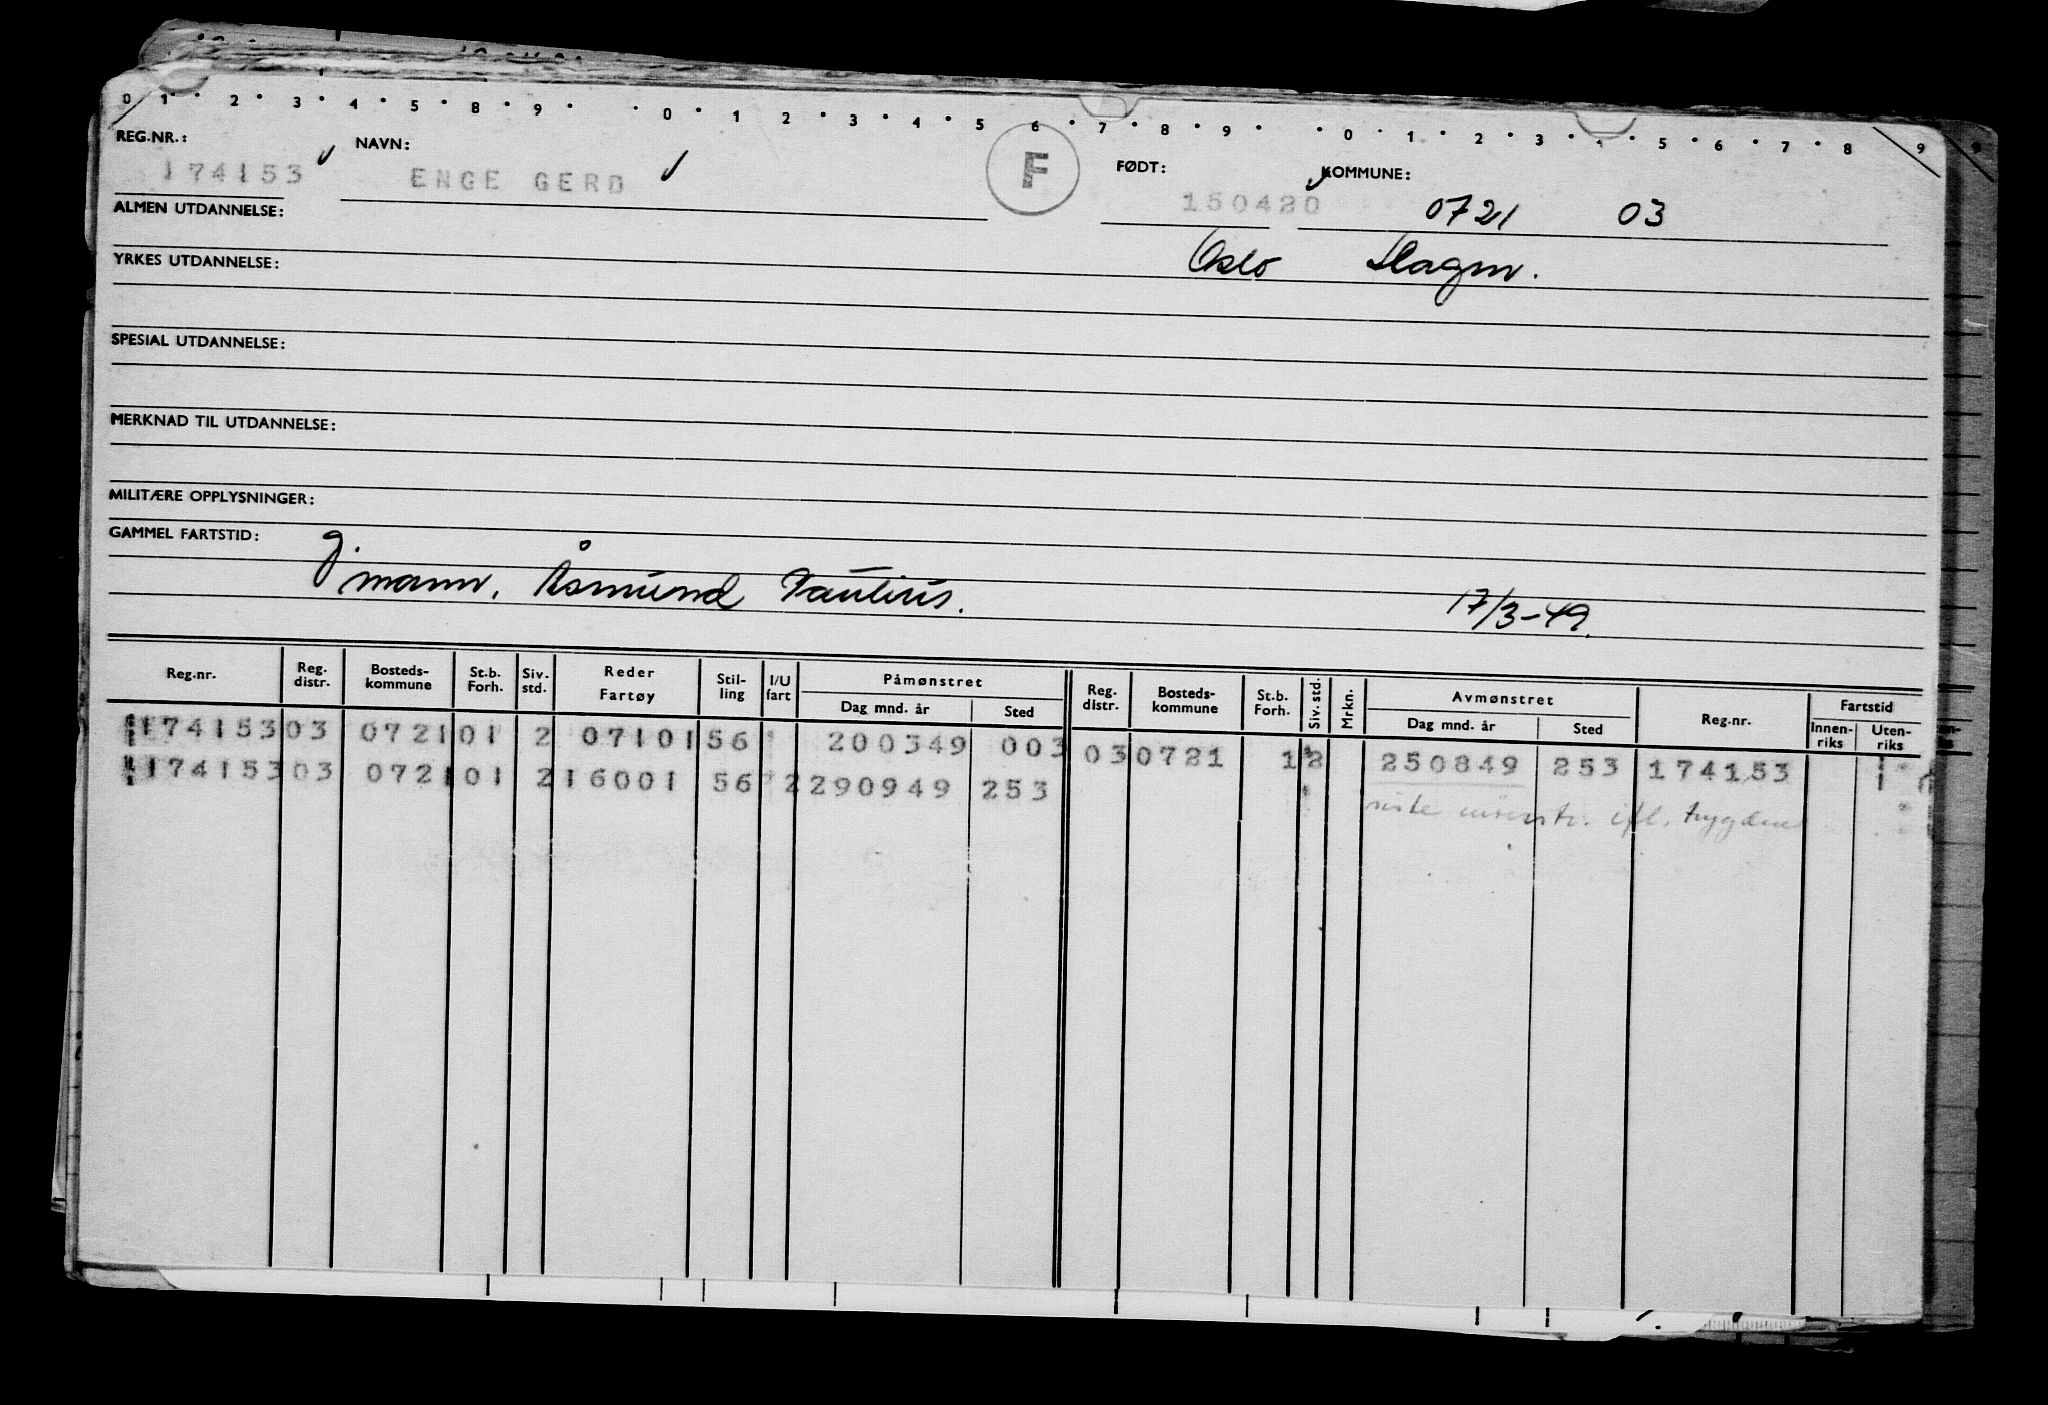 0 1 2 3 4 5 8 9 0 1 2 3 4 5 6 7 8 9 0 1 2 3 4 5 6 7 8 9
REG.NR.: NAVN: F FØDT: KOMMUNE:
174153 ENGE GERD 150420 0721 03
ALMEN UTDANNELSE:
Oslo Slagen.
YRKES UTDANNELSE:
SPESIAL UTDANNELSE:
MERKNAD TIL UTDANNELSE:
MILITÆRE OPPLYSNINGER:
GAMMEL FARTSTID:
g. mann. Åsmund Paulius. 17/3-49.
Reg.nr. Reg. distr. Bosteds-kommune St.b. Forh. Siv. std. Reder Fartøy Stil-ling I/U fart Påmønstret Dag mnd. år Sted Reg. distr. Bosteds-kommune St.b. Forh. Siv. std. Mrkn. Avmønstret Dag mnd. år Sted Reg.nr. Fartstid Innen-riks Uten-riks
174153 03 0721 01 2 07101 56 200349 003 03 0721 1 2 250849 253 174153
174153 03 0721 01 2 16001 56 2 290949 253
siste mönstr. ifl. trygden